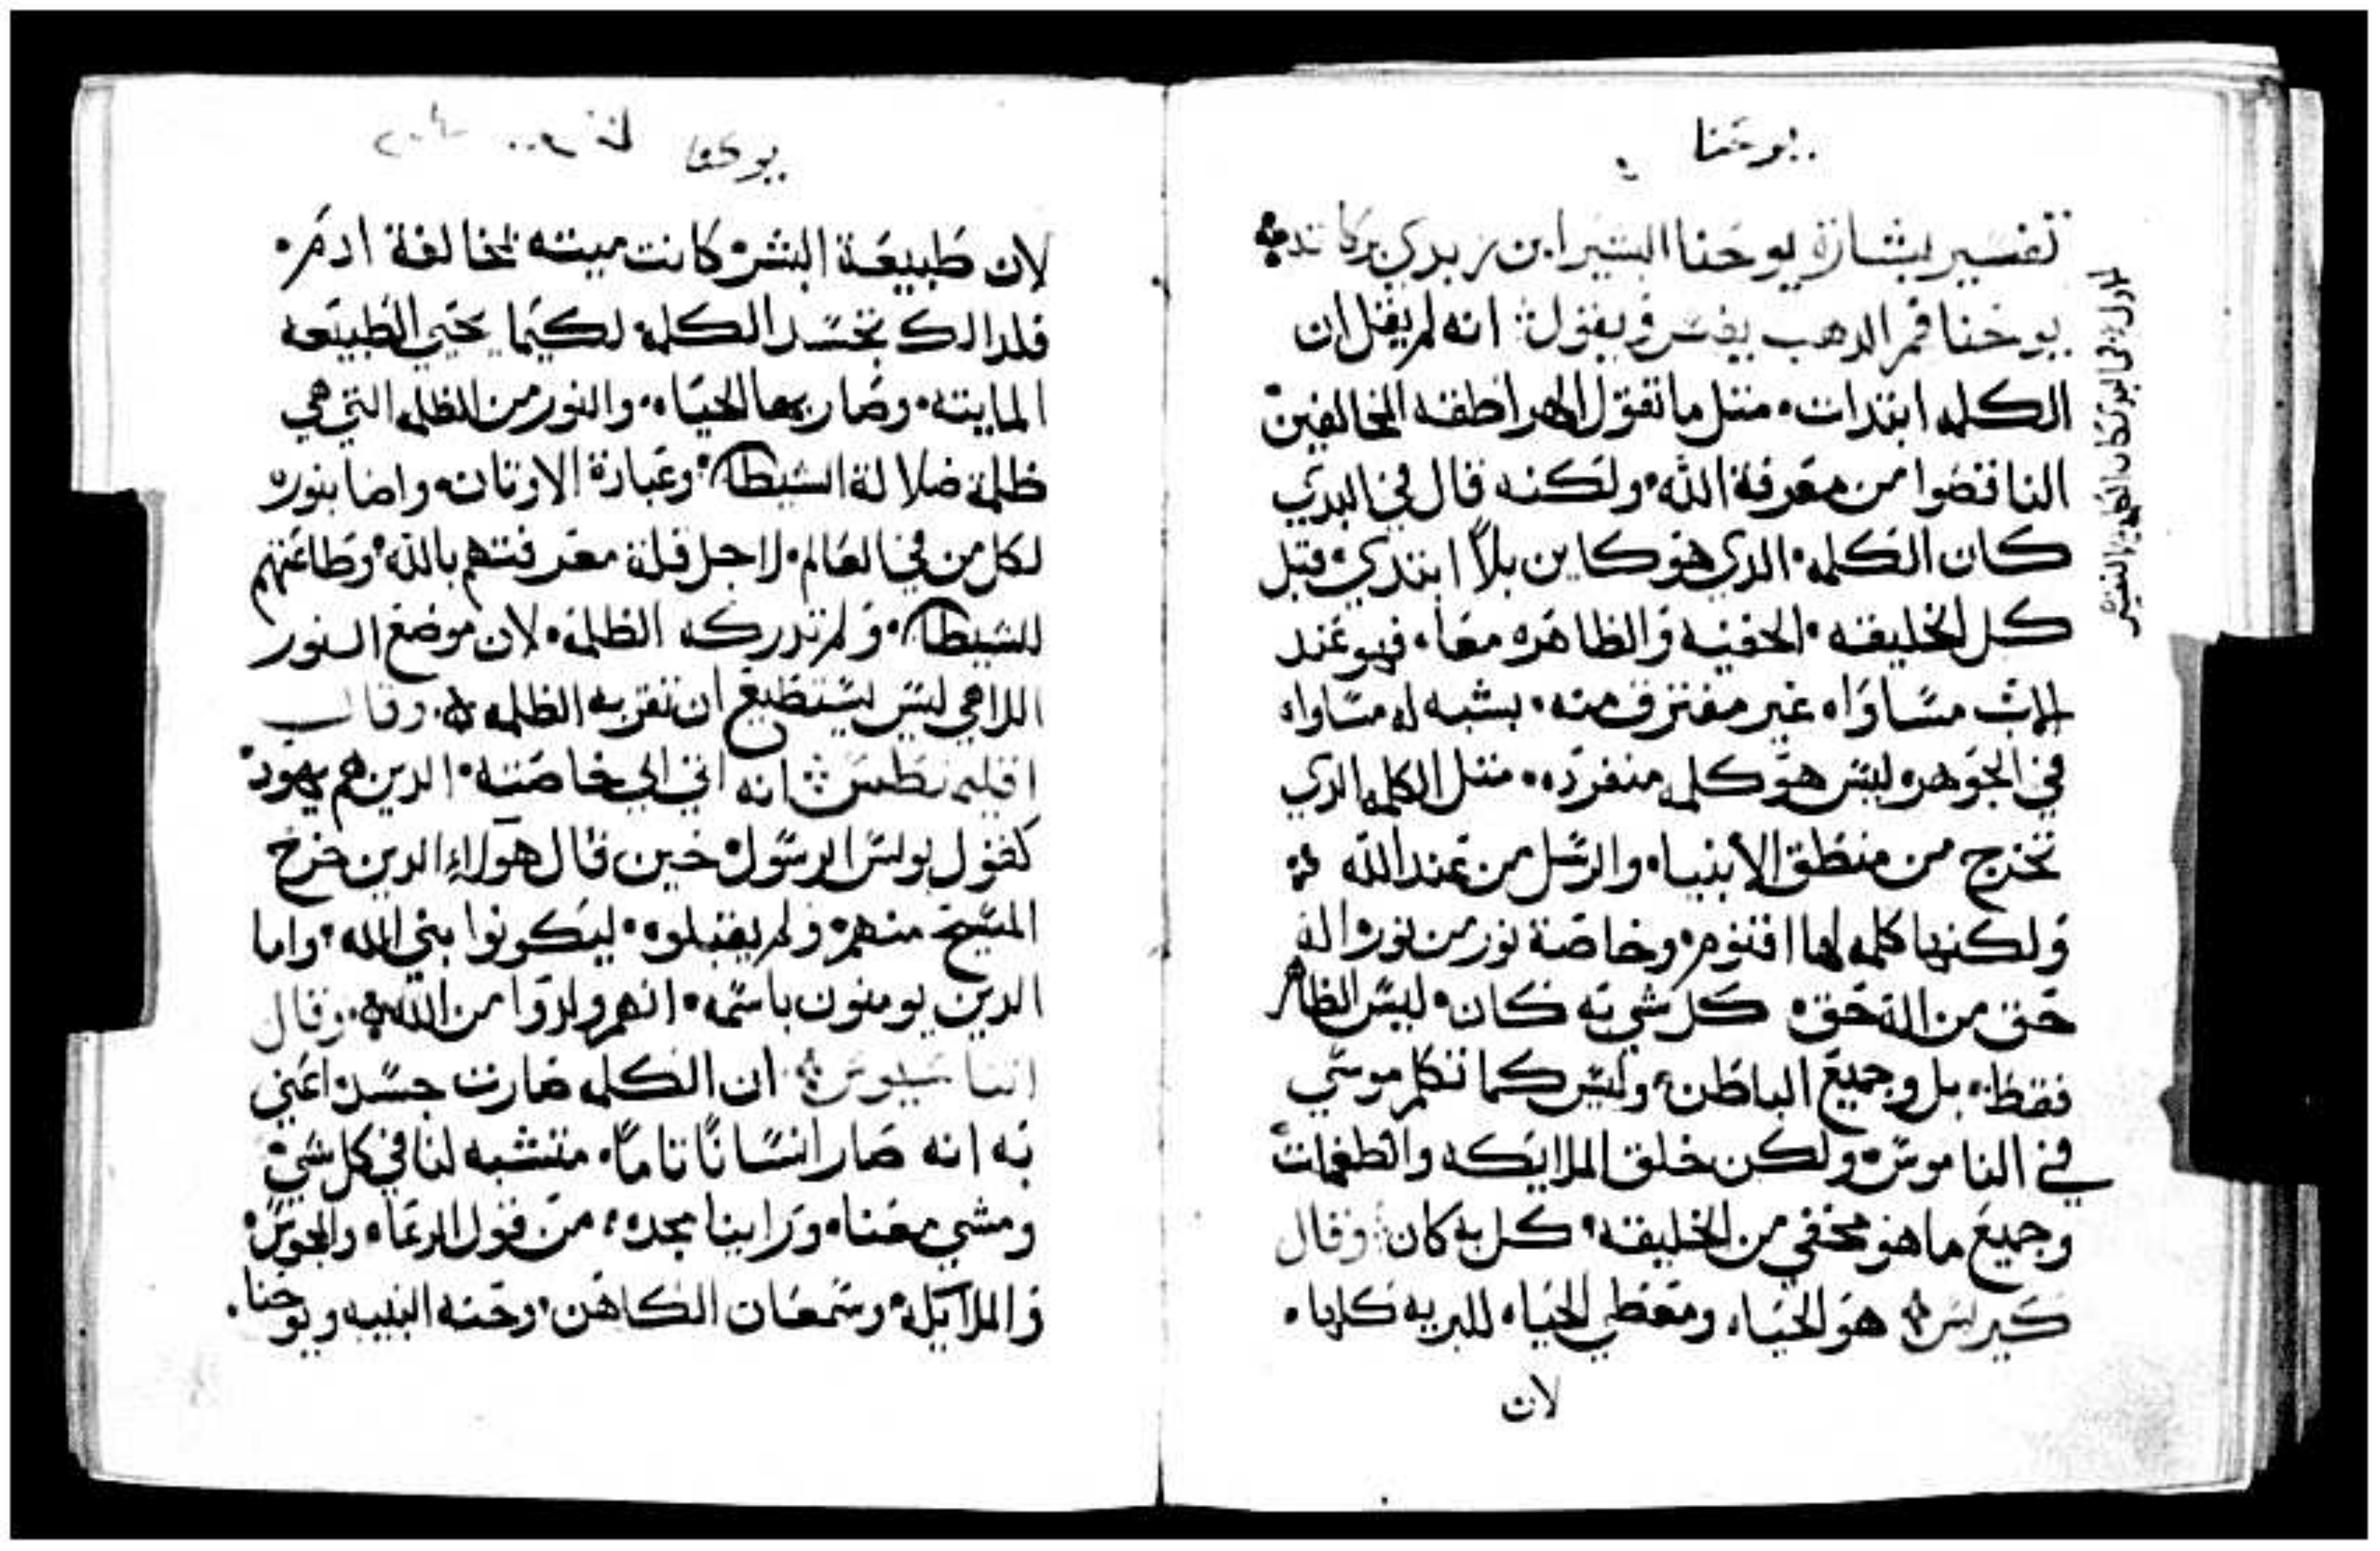 يوحنا
تفسير بشارة يوحنا البشير ابن زبدي بركاته
يوحنا فم الدهب يفسر ويقول انه لم يقل ان
الكلمه ابتدات مثل ما تقول الهراطقه المخالفين
الناقصوا من معرفة الله ولكنه قال في البدي
كان الكلمه الدي هو كاين بلا ابتدي قبل
كل الخليقه الخفيه والظاهره معا فهو عند
الاب مساواه غير مفترق منه بشبه له مساواه
في الجوهر ليس هو كلمه منفرده مثل الكلمه الدي
تخرج من منطق الانبياء والرسل من عند الله
ولكنها كلمه لها اقنوم وخاصة نور من نور اله
حق من اله حق كل شي به كان ليس الظاهر
فقط بل وجميع الباطن وليس كما تكلم موسي
في الناموس ولكن خلق الملايكه والطغمات
وجميع ما هو مخفي من الخليقه كل به كان وقال
كيرلس هو الحياه ومعطي الحياه للبريه كلها
لان
يوحنا
لان طبيعة البشر كانت ميته لمخالفة ادم
فلدالك تجسد الكلمة لكيما يحيي الطبيعه
المايته وصار بها الحياه والنور من الظلمه التي هي
ظلمة ضلالة الشيطان وعبادة الاوتان واضا بنوره
لكل من في العالم لاجل قلة معرفتهم بالله وطاعتهم
للشيطان ولم تدركه الظلمة لان موضع النور
اللاهي ليس يستطيع ان تقربه الظلمه وقال
اقليمنطس انه اتي الي خاصته الدين هم يهود
كقول بولس الرسول حين قال هولاء الدين خرج
المسيح منهم ولم يقبلوه ليكونوا بني الله واما
الدين يومنون باسمه انهم ولدوا من الله وقال
اتناسيوس ان الكلمه صارت جسد اعني
به انه صار انسانا تاما متشبه لنا في كل شي
ومشي معنا وراينا مجده من قول الرعاه والمجوس
والملايكه وسمعان الكاهن وحنه النبيه ويوحنا